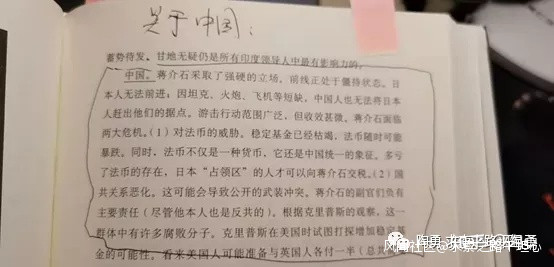 关于中国：
蓄势待发。甘地无疑仍是所有印度领导人中最有影响力的。
中国。蒋介石采取了强硬的立场，前线正处于僵持状态。日
本人无法前进；因坦克、火炮、飞机等短缺，中国人也无法将日本
人赶出他们的据点。游击行动范围广泛，但收效甚微。蒋介石面临
两大危机。（1）对法币的威胁。稳定基金已经枯竭，法币随时可能
暴跌。同时，法币不仅是一种货币，它还是中国统一的象征。多亏
了法币的存在，日本“占领区”的人才可以向蒋介石交税。（2）国
共关系恶化。这可能会导致公开的武装冲突。蒋介石的副官们负有
主要责任（尽管他本人也是反共的）。根据克里普斯的观察，这一
群体中有许多腐败分子。克里普斯在美国时试图打探增加稳定基
金的可能性，看来美国人可能准备与英国人各付一半（总